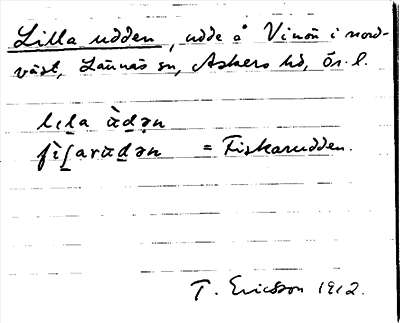 Lilla udden, udde å Vinön i nord-
väst, Lännäs sn, Askers hd, Ör. l.
lɩla ùdən
fìʃarùdən = Fiskarudden.
T. Ericsson 1912.